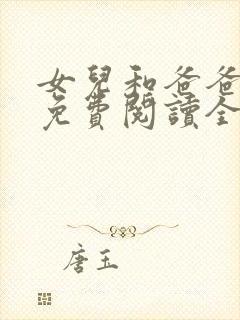 女兒和爸爸
免費閱讀全
唐玉